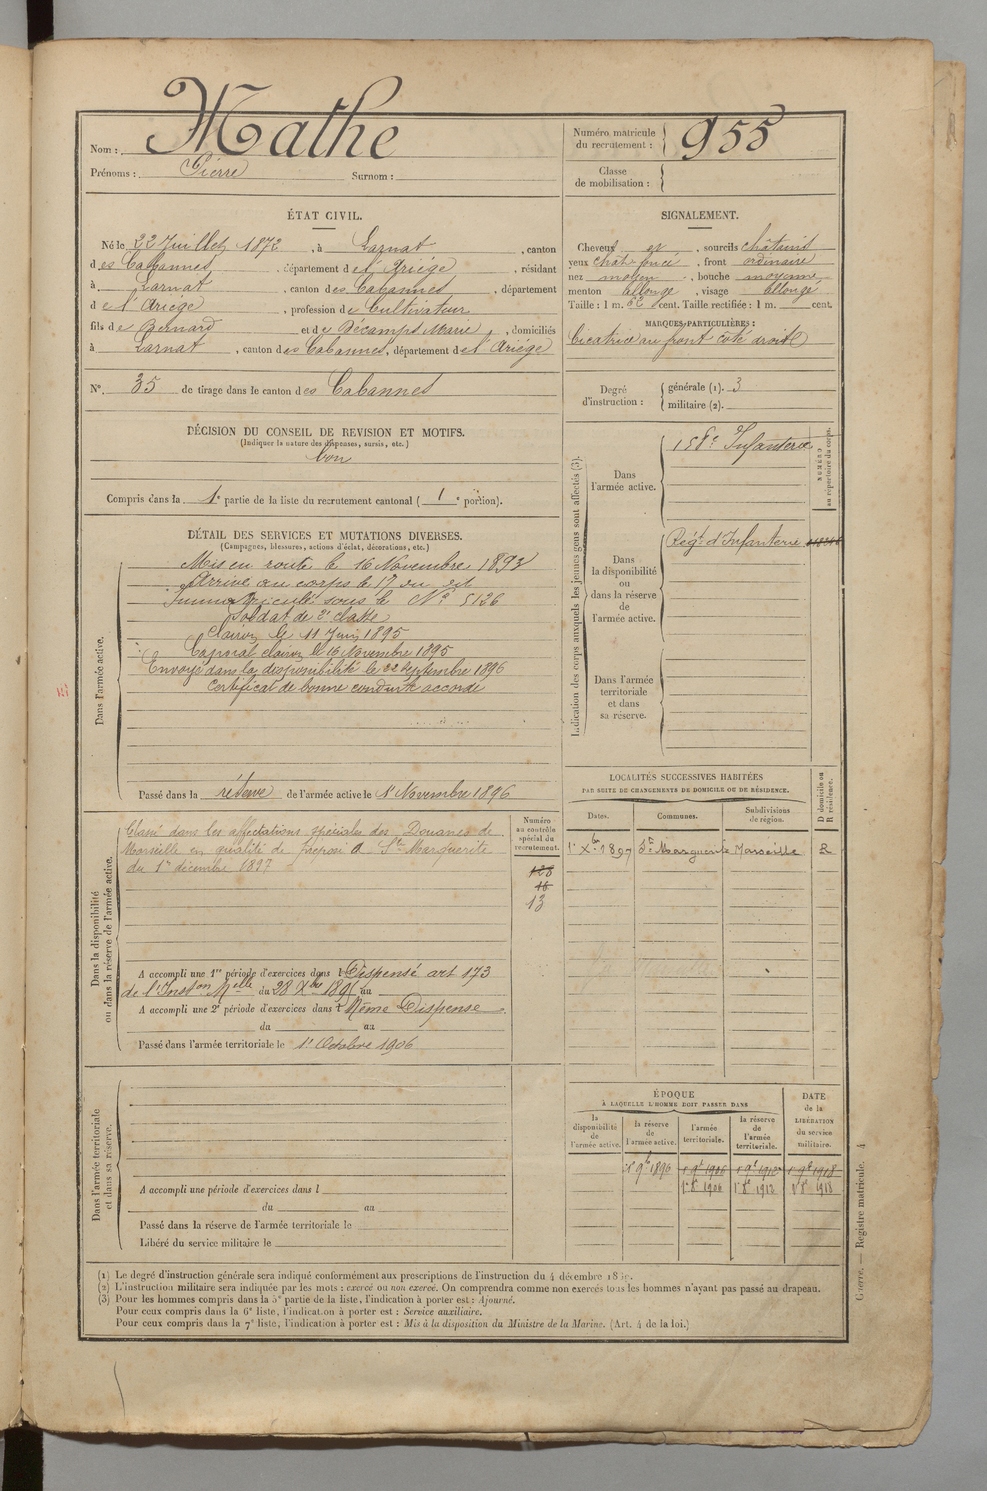 Nom : Mathe
Prénoms : Pierre Surnom :
Numéro matricule du recrutement : 955
Classe de mobilisation :
ÉTAT CIVIL.
Né le 22 Juillet 1872, à Larnat, canton
des Cabannes, département de l'Ariége, résidant
à Larnat, canton des Cabannes, département
de l'Ariége, profession de Cultivateur
fils de Bernard et de Décamps Marie, domiciliés
à Larnat, canton des Cabannes, département de l'Ariége
N°. 35 de tirage dans le canton des Cabannes
DÉCISION DU CONSEIL DE REVISION ET MOTIFS.
(Indiquer la nature des dispenses, sursis, etc.)
bon
Compris dans la 1e partie de la liste du recrutement cantonal ( 1 e portion).
SIGNALEMENT.
Cheveux et, sourcils châtains
yeux chat. foncé, front ordinaire
nez moyen, bouche moyenne
menton allongé, visage allongé
Taille : 1 m. 62 cent. Taille rectifiée : 1 m. cent.
MARQUES PARTICULIÈRES :
Cicatrice au front côté droit
Degré d'instruction : générale (1). 3
militaire (2).
Indication des corps auxquels les jeunes gens sont affectés (3).
Dans l'armée active. 158e d'Infanterie
NUMÉRO au répertoire du corps.
Dans la disponibilité ou dans la réserve de l'armée active.
Régt d'Infanterie
Dans l'armée territoriale et dans sa réserve.
DÉTAIL DES SERVICES ET MUTATIONS DIVERSES.
(Campagnes, blessures, actions d'éclat, décorations, etc.)
Dans l'armée active.
Mis en route le 16 Novembre 1893
Arrivé au corps le 17 du et
Immatriculé sous le N° 5126
soldat de 2e classe
Clairon le 11 Juin 1895
Caporal clairon le 16 Novembre 1895
Envoyé dans la disponibilité le 22 septembre 1896
Certificat de bonne conduite accordé
Passé dans la réserve de l'armée active le 1r Novembre 1896
LOCALITÉS SUCCESSIVES HABITÉES
PAR SUITE DE CHANGEMENTS DE DOMICILE OU DE RÉSIDENCE.
D domicile ou R résidence.
Dates. Communes. Subdivisions de région.
1r Xbre 1897 Ste Marguerite Marseille R
Dans la disponibilité ou dans la réserve de l'armée active.
Numéro au contrôle spécial du recrutement.
Classé dans les affectations spéciales des Douanes de
Marseille en qualité de préposé à Ste Marguerite
du 1er décembre 1897
128
16
13
A accompli une 1re période d'exercices dans l Dispensé art 173
de l'Inston Melle du 28 Xbre 1895 au
A accompli une 2e période d'exercices dans l Même Dispense
du au
Passé dans l'armée territoriale le 1r Octobre 1906
Dans l'armée territoriale et dans sa réserve.
A accompli une période d'exercices dans l
du au
Passé dans la réserve de l'armée territoriale le
Libéré du service militaire le
ÉPOQUE
À LAQUELLE L'HOMME DOIT PASSER DANS
DATE de la LIBÉRATION du service militaire.
la disponibilité de l'armée active.
la réserve de l'armée active.
l'armée territoriale.
la réserve de l'armée territoriale.
1r 9bre 1896 1r 9bre 1906 1r 9bre 1912 1r 9bre 1918
1r 8bre 1906 1r 8bre 1912 1r 8bre 1918
(1) Le degré d'instruction générale sera indiqué conformément aux prescriptions de l'instruction du 4 décembre
(2) L'instruction militaire sera indiquée par les mots : exercé ou non exercé. On comprendra comme non exercés tous les hommes n'ayant pas passé au drapeau.
(3) Pour les hommes compris dans la 5e partie de la liste, l'indication à porter est : Ajourné.
Pour ceux compris dans la 6e liste, l'indication à porter est : Service auxiliaire.
Pour ceux compris dans la 7e liste, l'indication à porter est : Mis à la disposition du Ministre de la Marine. (Art. 4 de la loi.)
Guerre. — Registre matricule. 4